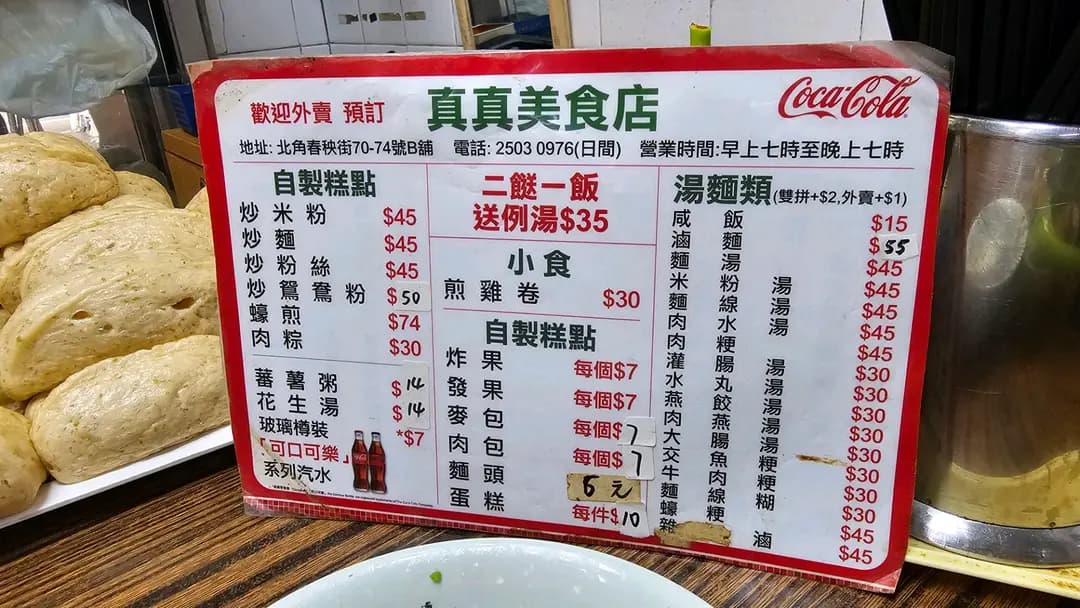 歡迎外賣 預訂
真真美食店
Coca-Cola
地址: 北角春秧街70-74號B舖 電話: 2503 0976(日間) 營業時間:早上七時至晚上七時
自製糕點
炒米粉 $45
炒麵 $45
炒粉絲 $45
炒鴛鴦粉 $50
蠔煎 $74
肉粽 $30
蕃薯粥 $14
花生湯 $14
玻璃樽裝 *$7
「可口可樂」
系列汽水
二餸一飯
送例湯$35
小食
煎雞卷 $30
自製糕點
炸果 每個$7
發果 每個$7
麥包 每個$7
肉包 每個$7
麵頭 6元
蛋糕 每件$10
湯麵類(雙拼+$2,外賣+$1)
咸飯 $15
滷麵 $55
麵湯 $45
米粉湯 $45
麵線湯 $45
肉水湯 $45
肉粳 $45
灌腸湯 $30
水丸湯 $30
燕餃湯 $30
肉燕湯 $30
大腸湯 $30
交魚粳 $30
牛肉粳 $30
麵線糊 $30
蠔粳 $45
雜滷 $45